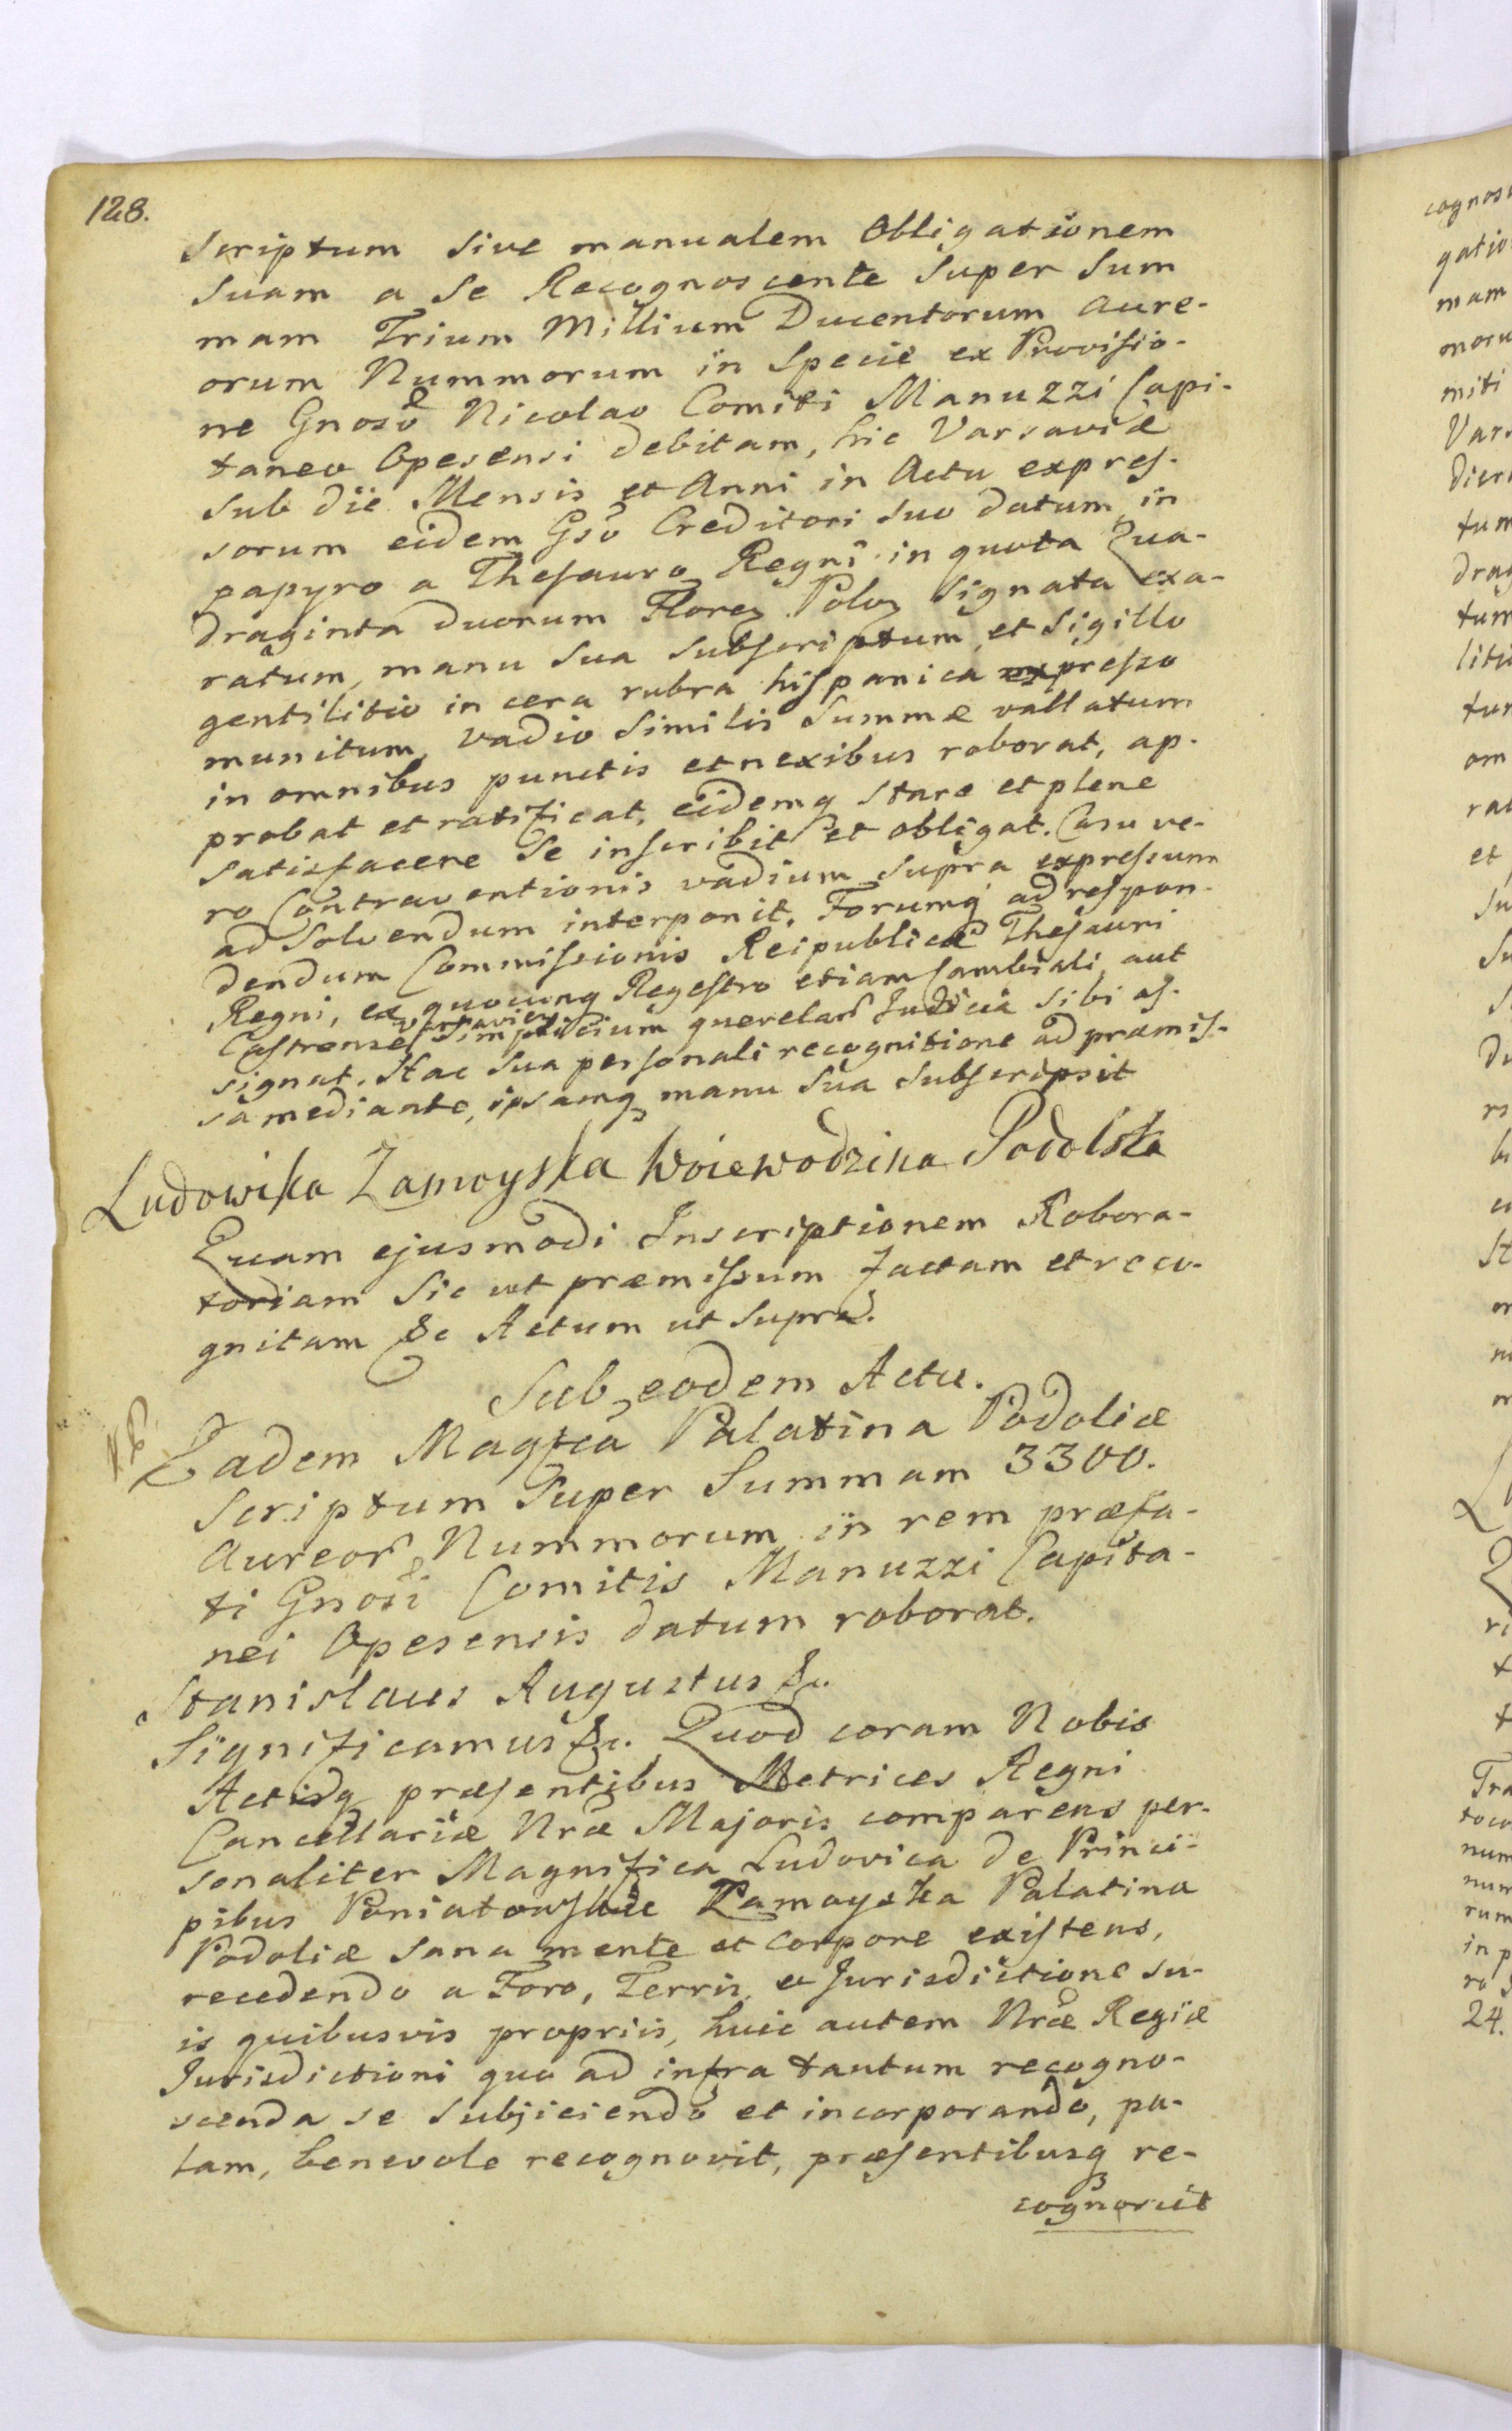 128.
Scriptum sive manualem Obligationem
Suam a Se Recognoscente Super Sum
mam Trium Millium Ducentorum Aure-
orum Nummorum in Specie ex Provisio-
ne Gnoso Nicolao Comiti Manuzzi Capi-
taneo Opesensi debitam, hic Varsaviæ
sub die Mensis et Anni in Actu expres-
sorum eidem Gso Creditori suo datum in
papyro a Thesauro Regni in quota Qua-
draginta duorum Floren Polon Signata exa-
ratum, manu Sua Subscriptum et Sigillo
gentilitio in cera rubra hispanica expresso
munitum, vadio Similis Summæ vallatum
in omnibus punctis et nexibus roborat, ap-
probat et ratificat, eidemq stare et plene
satisfacere Se inscribit et obligat. Casu ve-
ro Contraventionis vadium supra expressum
ad Solvendum interponit. Forumq ad respon-
dendum Commissionis Reipublicæ Thesauri
Regni, ex quocunq Regestro etiam Cambiali aut
Castrense Varsavien Simplicium querelar Judicia sibi as-
signat. Hac Sua personali recognitione ad præmis-
sa mediante, ipsamq manu Sua Subscripsit
Ludowika Zamoyska Woiewodzina Podolska
Quam ejusmodi Inscriptionem Robora-
toriam Sic ut præmissum factam et reco-
gnitam &c Actum ut Supra.
Sub eodem Actu.
Eadem Magfca Palatina Podoliæ
Scriptum Super Summam 3300.
Aureor Nummorum in rem præfa-
ti Gnosi Comitis Manuzzi Capita-
nei Opesensis datum roborat.
Stanislaus Augustus &c.
Significamus &c. Quod coram Nobis
Actisq præsentibus Metrices Regni
Cancellariæ Nræ Majoris comparens per-
sonaliter Magnifica Ludovica de Princi-
pibus Poniatowskie Zamoyska Palatina
Podoliæ sana mente et corpore existens,
recedendo a Foro, Terris et Jurisdictione su-
is quibusvis propriis, huic autem Nræ Regiæ
Jurisdictioni quo ad infra tantum recogno-
scenda se Subjiciendo et incorporando, pa-
lam, benevole recognovit, præsentibusq re-
cognoscit